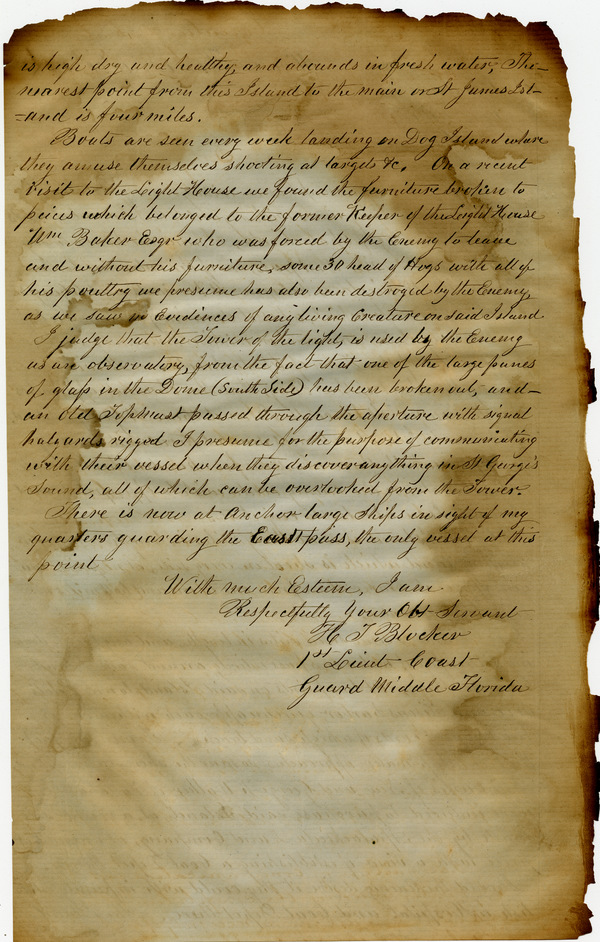 is high dry and healthy, and abounds in fresh water, The
nearest point from this Island to the main or St James Isl-
-and is four miles.
Boats are seen every week landing on Dog Island where
they amuse themselves shooting at targets &c. On a recent
visit to the Light House we found the furniture broken to
peices which belonged to the former Keeper of the Light House
Wm Baker Esqr who was forced by the Enemy to leave
and without his furniture, some 30 head of Hogs with all of
his poultry we presume has also been destroyed by the Enemy,
as we saw no evidences of any living Creature on said Island
I judge that the Tower of the light, is used by the Enemy
as an observatery, from the fact that one of the large panes
of glass in the Dome (South Side) has been broken out, and-
an Old Topmast passed through the aperture with signal
halyards rigged I presume for the purpose of communicating
with their vessel when they discover anything in St Georges
Sound, all of which can be overlooked from the Tower.
There is now at Anchor large Ships in sight of my
quarters guarding the East pass, the only vessel at this
point
With much Esteem, I am
Respectfully Your Obt Servant
H T Blocker
1st Lieut Coast
Guard Middle Florida